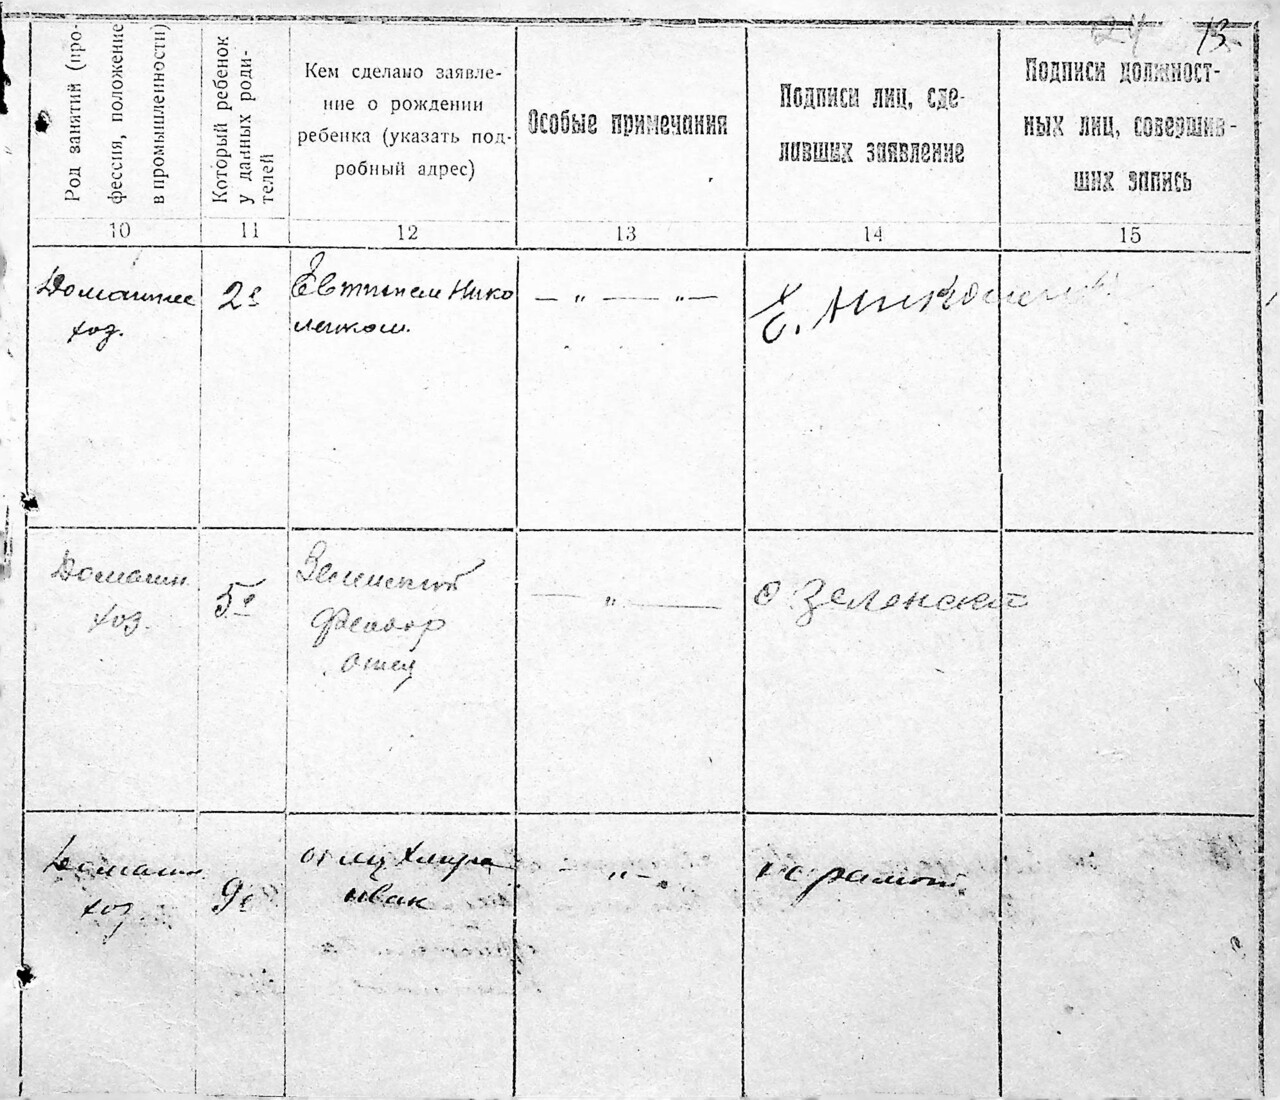 24 13
Род занятий (про-
фессия, положение
в промышленности)
Который ребенок
у данных роди-
телей
Кем сделано заявле-
ние о рождении
ребенка (указать под-
робный адрес)
Особые примечания
Подписи лиц, сде-
лавших заявление
Подписи должност-
ных лиц, совершив-
ших запись
10 11 12 13 14 15
Домашнее
хоз.
2е
Нико
— „ — „ —
Е.
Домашн.
хоз.
5е
Феодор
отец
— „ —
Зеленский
Домашн
хоз
9е
отец
Иван
— „ —